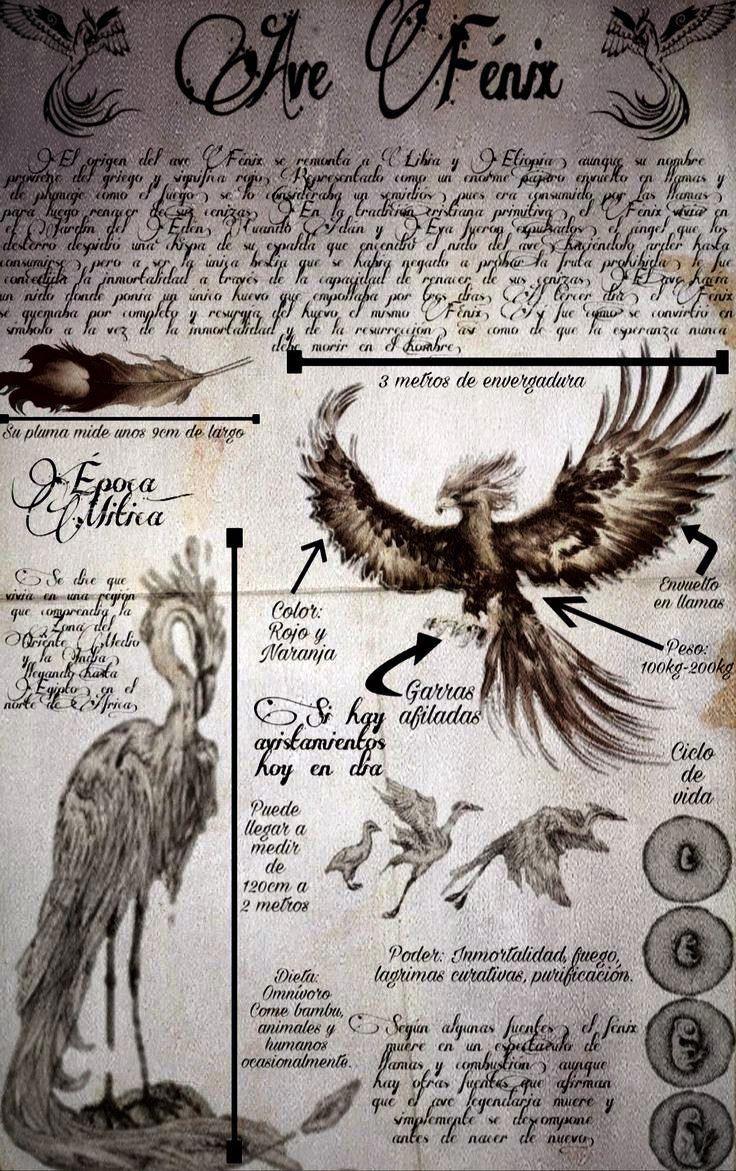 Ave Fénix
El origen del ave Fénix se remonta a Libia y Etiopia, aunque su nombre
proviene del griego y significa rojo. Representado como un enorme pájaro envuelto en llamas y
de plumaje como el fuego, se lo consideraba un semidios, pues era consumido por las llamas
para luego renacer de sus cenizas. En la tradición cristiana primitiva, el Fénix vivía en
el Jardín del Edén. Cuando Adán y Eva fueron expulsados, el ángel que los
desterró despidió una chispa de su espalda que encendió el nido del ave haciéndolo arder hasta
consumirse, pero a ser la única bestia que se había negado a probar la fruta prohibida, le fue
concedida la inmortalidad a través de la capacidad de renacer de sus cenizas. El ave hacía
un nido donde ponía un único huevo que empollaba por tres días. Al tercer día el Fénix
se quemaba por completo y resurgía del huevo el mismo Fénix. Así fue como se convirtió en
símbolo a la vez de la inmortalidad y de la resurrección, así como de que la esperanza nunca
debe morir en el hombre,
3 metros de envergadura
Su pluma mide unos 9cm de largo
Época
Mítica
Se dice que
vivía en una región
que comprendía la
Zona del
Oriente Medio
y la India
llegando hasta
Egipto, en el
norte de África,
Color:
Rojo y
Naranja
Envuelto
en llamas
Peso:
100kg-200kg
Garras
afiladas
Si hay
avistamientos
hoy en día
Ciclo
de
vida
Puede
llegar a
medir
de
120cm a
2 metros
Poder: Inmortalidad, fuego,
lagrimas curativas, purificación.
Dieta:
Omnívoro
Come bambu,
animales y
humanos
ocasionalmente.
Según algunas fuentes, el fénix
muere en un espectáculo de
llamas y combustión, aunque
hay otras fuentes que afirman
que el ave legendaria muere y
simplemente se descompone
antes de nacer de nuevo,